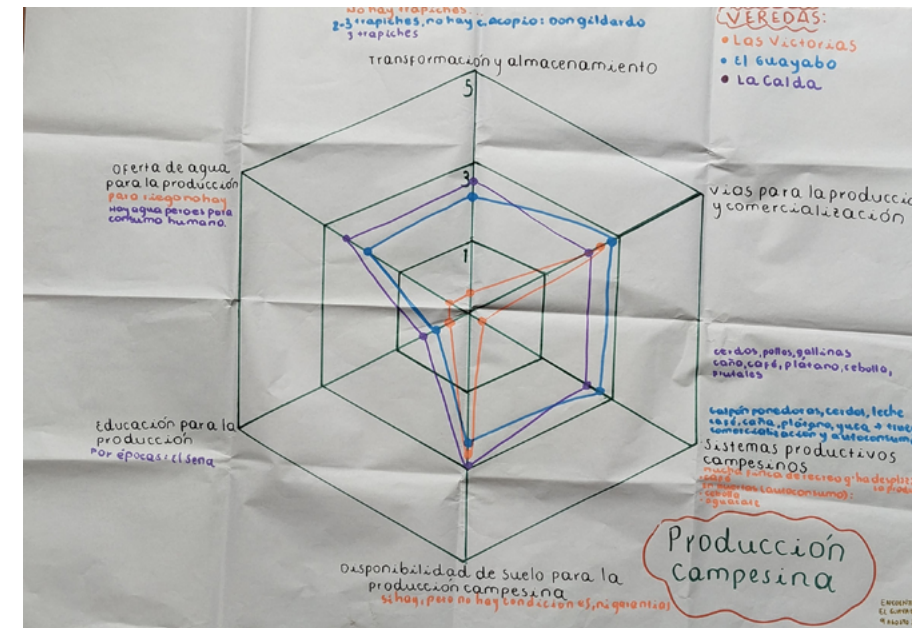 No hay trapiches.
2-3 trapiches, no hay c. acopio: Don gildardo
3 trapiches
Transformación y almacenamiento
VEREDAS:
• Las Victorias
• El Guayabo
• La Calda
5
3
1
Oferta de agua
para la producción
para riego no hay
Hay agua pero es para
consumo humano.
Vías para la producció
y comercialización
cerdos, pollos, gallinas
caña, café, plátano, cebolla,
frutales
Galpón ponedoras, cerdos, leche
café, caña, plátano, yuca →
comercialización y autoconsumo
Sistemas productivos
campesinos
mucha finca de recreo
• café
(autoconsumo):
• cebolla
• aguacate
Educación para la
producción
Por épocas: El Sena
Disponibilidad de suelo para la
producción campesina
si hay, pero no hay condiciones, ni garantías
Producción
campesina